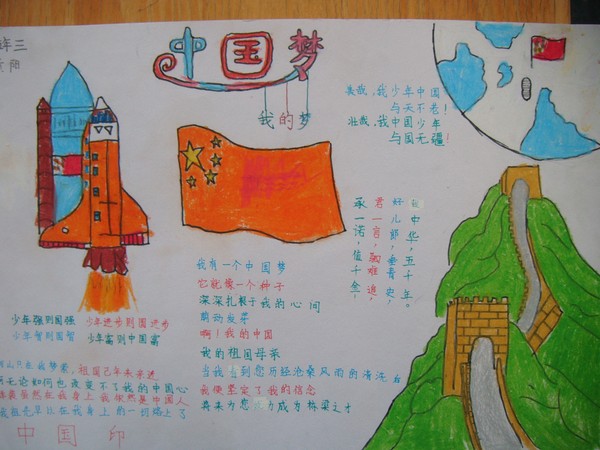 年三
阳
中国梦
我的梦
美哉,我少年中国
与天不老!
壮哉,我中国少年
与国无疆!
中华,五千年。
好儿郎,垂青史,
君一言,驷难追,
承一诺,值千金,
我有一个中国梦
它就像一个种子
深深扎根于我的心间
萌动发芽
啊!我的中国
我的祖国母亲
当我看到您历经沧桑风雨的清洗后
我便坚定了我的信念
将来为您成为栋梁之才
少年强则国强 少年进步则国进步
少年智则国智 少年富则中国富
山只在我梦萦,祖国已年未亲近
无论如何也改变不了我的中国心
装虽然在我身上我依然是中国人
我祖先早比在我身上的一切烙上了
中国印